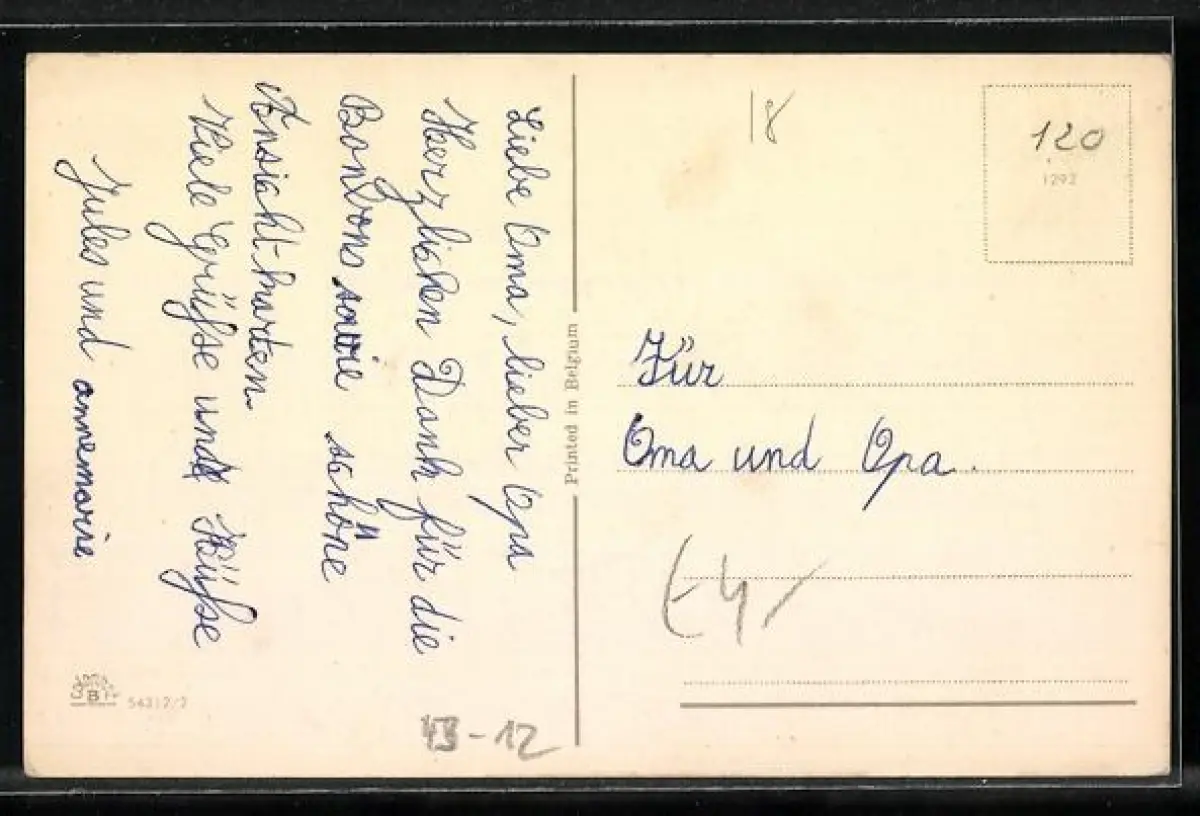 Liebe Oma, lieber Opa
Herzlichen Dank für die
Bonbons sowie schöne
Ansichtkarten.
Viele Grüße und Küße
Jules und annemarie
Printed in Belgium
18
120
1292
Für
Oma und Opa.
54312/2
-12